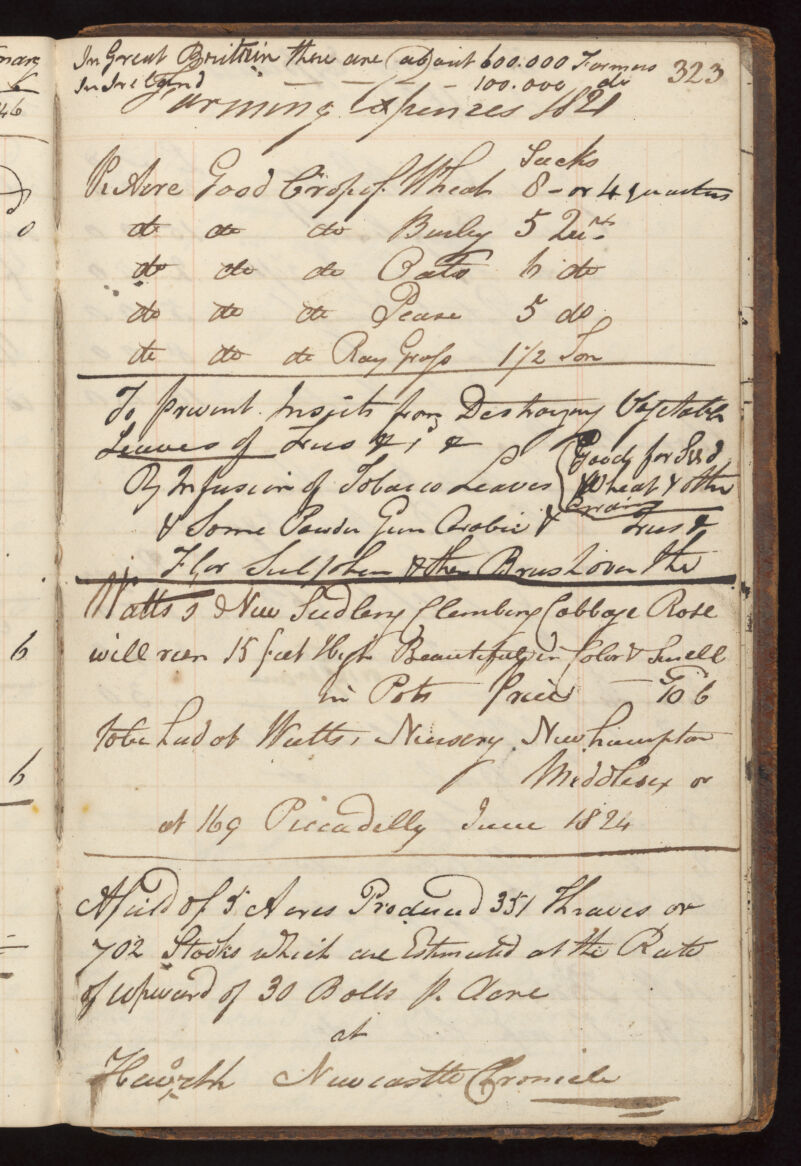 In Great Brittain there are about 600.000 Farmers 323
In Ireland — — — 100.000 do
Farming Expences 1821
Sacks
Pr Acre Good Crop of Wheat 8 – or 4 quarters
do do do Barley 5 Qurs
do do do Oats 6 do
do do do Pease 5 do
do do do Ray Grass 1 1/2 Ton
To prevent Insects from Destroying Vegetable
Leaves of Trees & &
By Infusion of Tobacco Leaves
Good for Seed
Wheat & other
Grains
& Some Powder Gum Arabic & Trees &
Flor Sulpher & then Brush over the
Watts's New Climbing Cabbage Rose
will run 15 feet High Beautiful in Color & Smell
in Pots price — 10 6
to be had at Watts, Nursery Newhampton
Middlesex or
at 169 Piccadelly June 1824
A field of 5 Acres Produced 351 Thraves or
702 Stooks which are Estimated at the Rate
of upward of 30 Bolls pr. Acre
at
Haworth Newcastle Chronicle
6
6
46